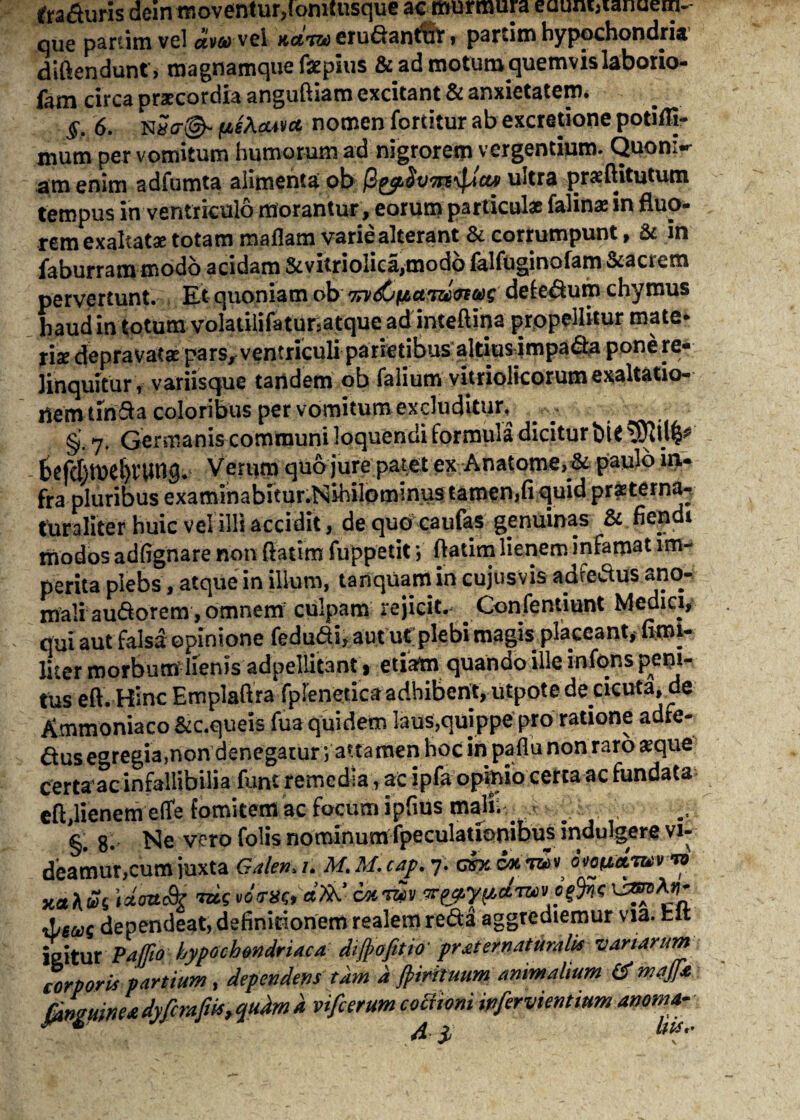 fracturis dein moventur, sonitusque ac murmura edunt, tandem-
que partim vel ἄνω vel κάτω eructantur, partim hypochondria
distendunt, magnamque sæpius & ad motum quemvis laborio-
sam circa præcordia angustiam excitant & anxietatem.
§. 6. Νῦσ@ μέλαινα nomen sortitur ab excretione potissi-
mum per vomitum humorum ad nigrorem vergentium. Quoni-
am enim adsumta alimenta ob βραδυπεψίαν ultra præstitutum
tempus in ventriculo morantur, eorum particulæ salinæ in fluo-
rem exaltatæ totam massam varie alterant & corrumpunt, & in
saburram modò acidam & vitriolicã, modò salsuginosam & acrem
pervertunt. Et quoniam ob defectum chymus
haud in totum volatilisatur, atque ad intestina propellitur mate-
riæ depravatæ pars, ventriculi parietibus altius impacta ponè re-
linquitur, variisque tandem ob salium vitriolicorum exaltatio-
nem tincta coloribus per vomitum excluditur.
§. 7. Germanis communi loquendi formulâ dicitur die Miltz-
beschwehrung. Verum quô jure patet ex Anatome, & paulò in-
fra pluribus examinabitur. Nihilominus tamen, si quid præterna-
turaliter huic vel illi accidit, de quo causas genuinas & fiendi
modos adsignare non statim suppetit; statim lienem infamat im-
perita plebs, atque in illum, tanquam in cujusvis adfectus ano-
mali auctorem, omnem culpam rejicit. Consentiunt Medici,
qui aut falsâ opinione seducti, aut ut plebi magis placeant, simi-
liter morbum lienis adpellitant, etiam quando ille insons peni-
tus est. Hinc Emplastra splenetica adhibent, utpote de cicuta, de
Ammoniaco &c. queis sua quidem laus, quippe pro ratione adfe-
ctus egregia, non denegatur; attamen hoc in passu non rarò æque
certa ac infallibilia sunt remedia, ac ipsa opinio certa ac fundata
est, lienem esse fomitem ac focum ipsius mali.
§. 8. Ne vero solis nominum speculationibus indulgere vi-
deamur, cum juxta Galen. 1. M. M. cap. 7. οὐκ ἐκ τῶν ὀνομάτων τὸ
καλῶς ἰάσασθαι τὰς νόσυς, ἀλλ' ἐκ τῶν πραγμάτων ὀρθῆς ὑπολή-
ψεως dependeat, definitionem realem rectâ aggrediemur viâ. Est
igitur Passio hypochondriaca dispositio præternaturalis variarum
corporis partium, dependens tàm à spirituum animalium & massæ
sanguineæ dyscrasiis, quàm à viscerum coctioni inservientium anoma-
A 3 liis..